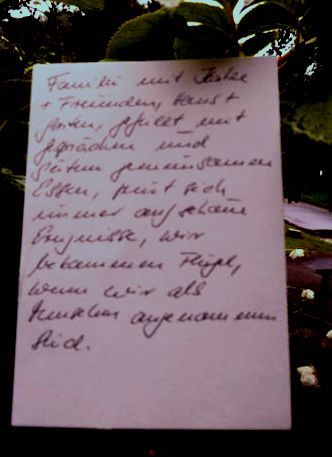 Familie mit Katze
+ Freunden, Haus +
Garten, gefüllt mit
gesprächen und
gemeinsamen
Essen, sich
immer auf schöne
Ereignisse, wir
bekommen Flügel,
wenn wir als
Menschen angenommen
sind.